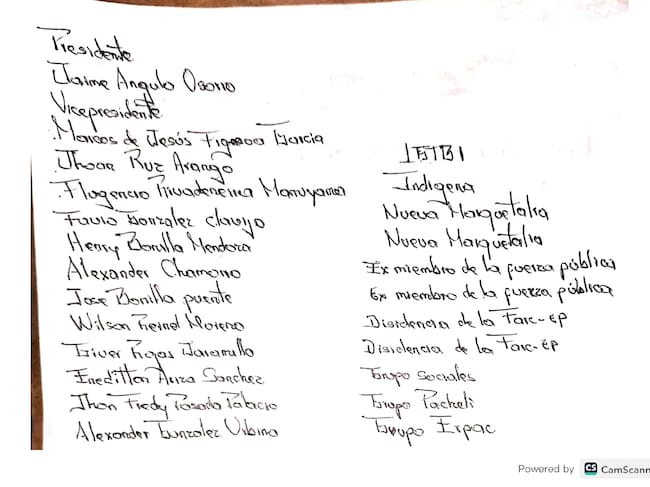 Presidente
Jaime Angulo Osorio
Vicepresidente
Marcos de Jesús Figueroa García
Jhoan Ruz Arango
Flogencio Rivadeneira Mamuyama
Fabio González Clavijo
Henry Bonilla Mendoza
Alexander Chamorro
Jose Bonilla puente
Wilson Reinel Moreno
Giver Rojas Jaramillo
Eneditton Ariza Sanchez
Jhon Fredy Posada Palacio
Alexander Gonzalez Urbina
Indígena
Nueva Marquetalia
Nueva Marquetalia
Ex miembro de la fuerza pública
Ex miembro de la fuerza pública
Disidencia de la Farc-EP
Disidencia de la Farc-EP
Grupo Sociales
Grupo Pacheli
Grupo Erpac
Powered by CS CamScann